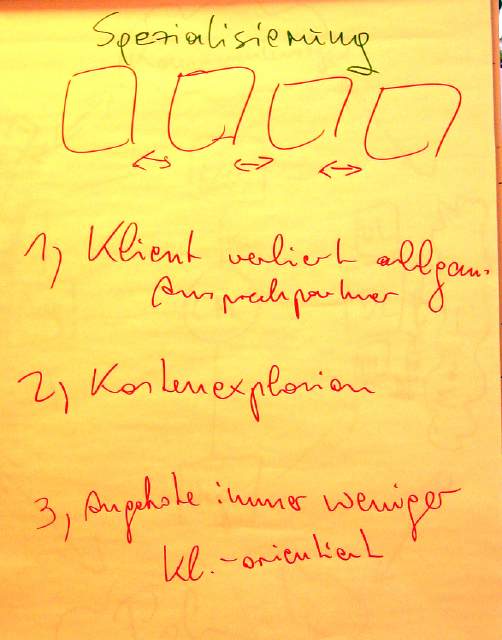 Spezialisierung
1) Klient verliert allgem.
Ansprechpartner
2) Kostenexplosion
3) Angebote immer weniger
Kl.-orientiert